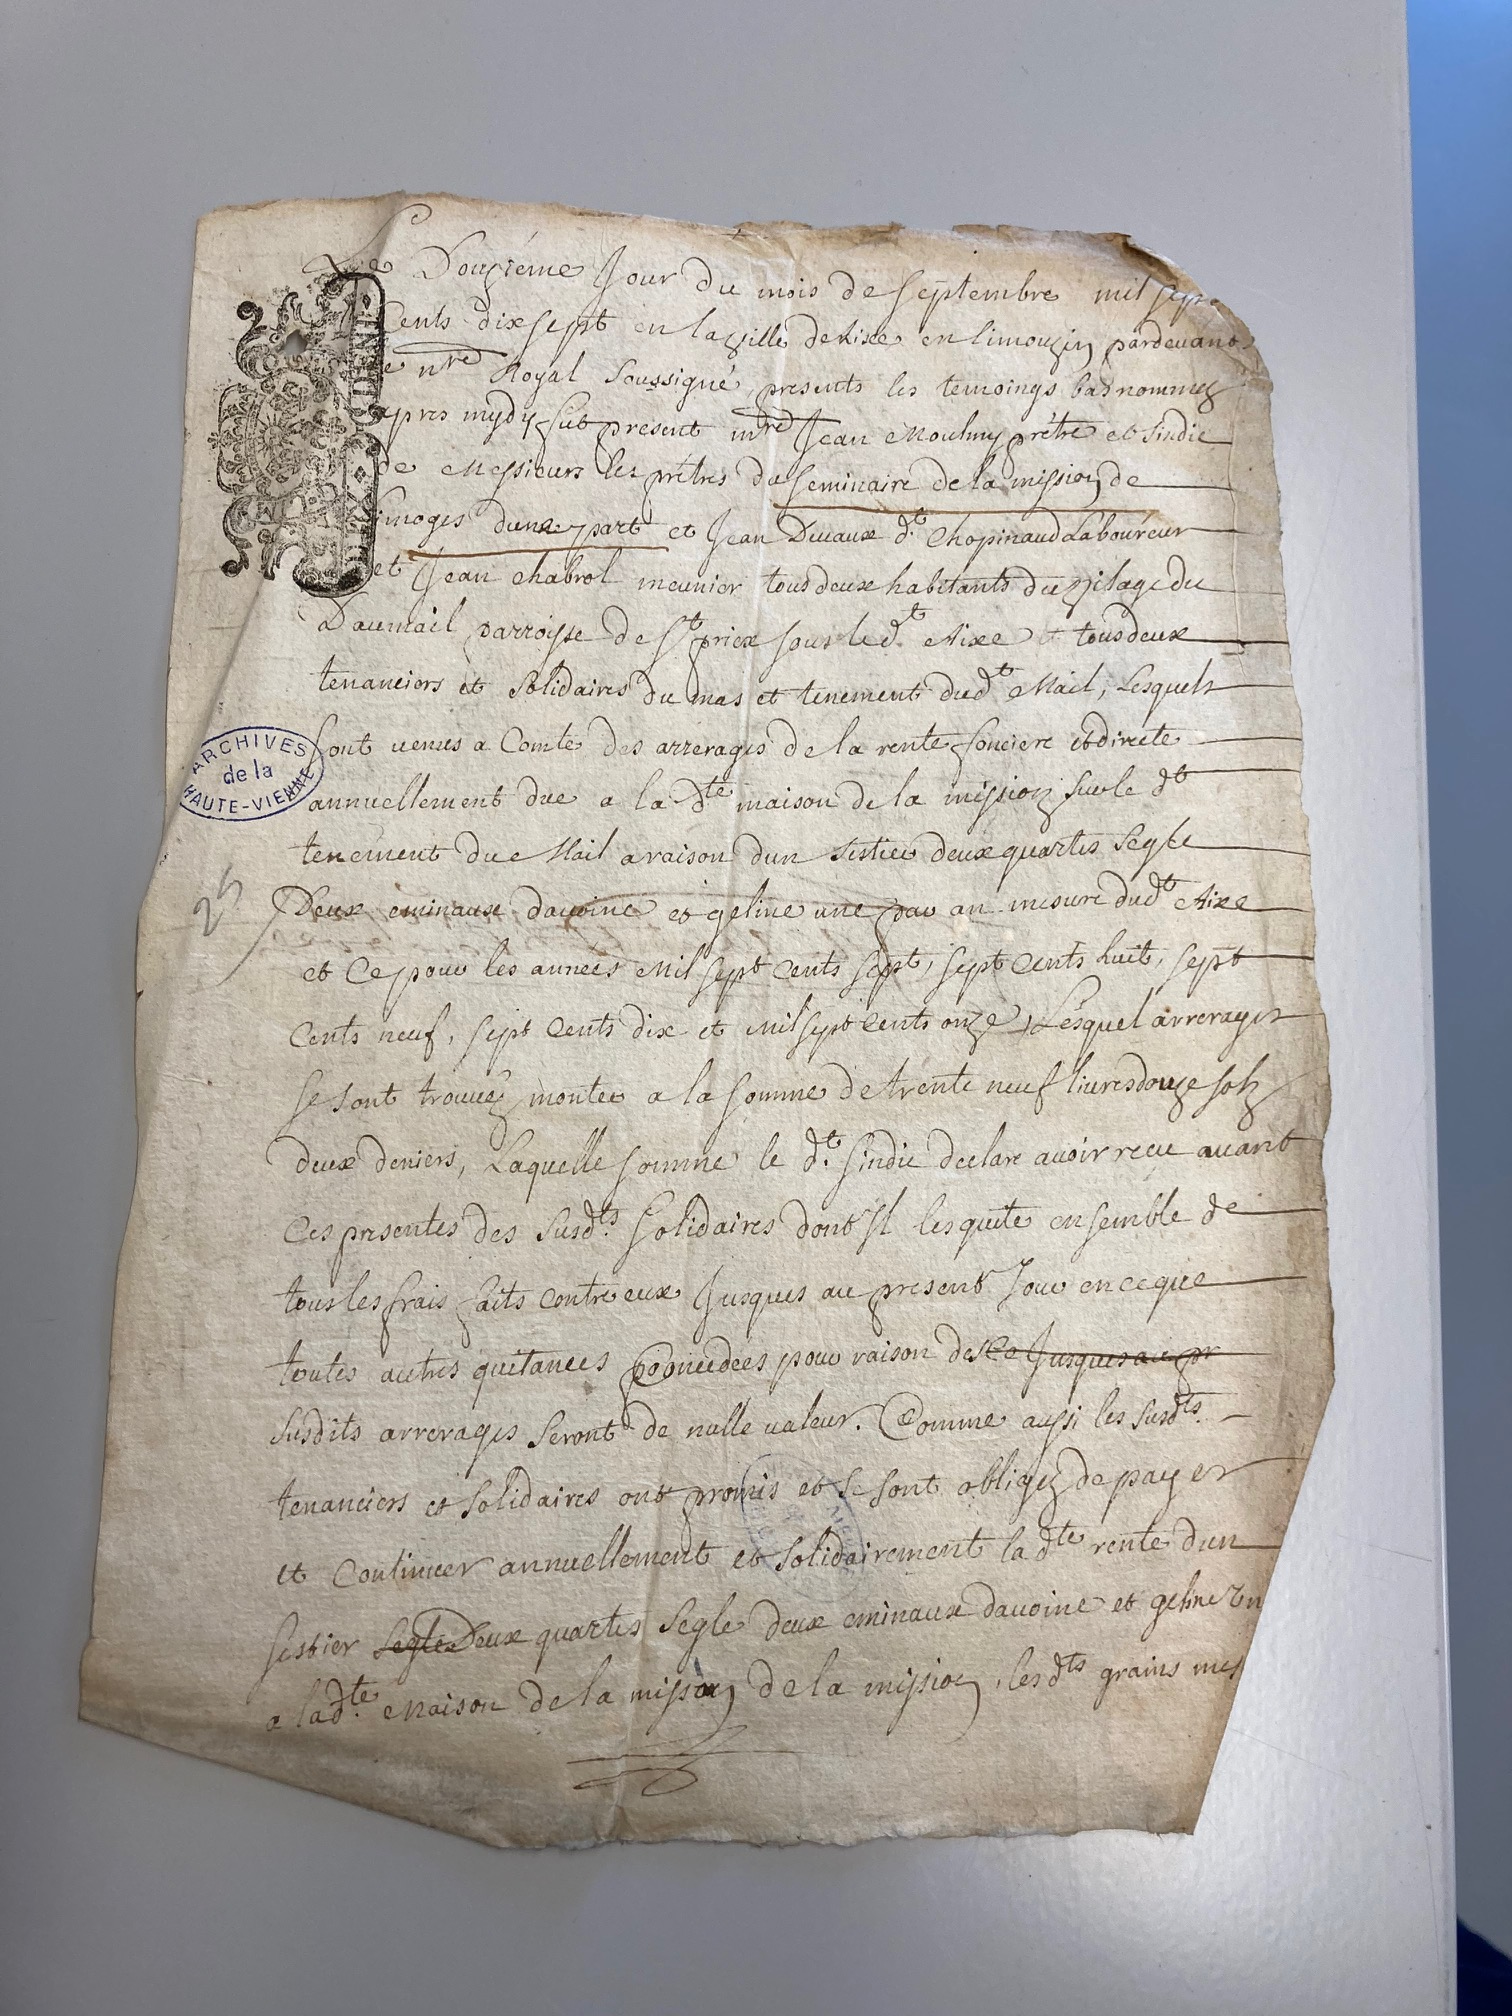 Le Douziéme Jour du mois de septembre mil sept
Cents dix sept en la ville de Aixe en limouzin pardevant
le nre Royal soussigné, presents les temoings bas nommez
apres mydy fut present mre Jean Mouliny prêtre et sindic
de Messieurs les prêtres du seminaire de la mission de
Limoges dune part et Jean Devaux dt Chopinaud Laboureur
et Jean Chabrol meunier tous deux habitants du vilage du
Daumail parroisse de St priex sous led.t Aixe et tous deux
tenanciers et solidaires du mas et tenement dudt Mail, Lesquels
sont venus a Comte des arrerages de la rente fonciere et directe
annuellement due a la dte maison de la mission sur le dt
tenement du Mail a raison dun sestier deux quartes segle
Deux eminaux davoine et geline une par an mesure dudt Aixe
et Ce pour les années Mil sept Cents sept, sept Cents huit, sept
Cents neuf, sept Cents dix et Mil sept Cents onze, Lesquel arrerages
se sont trouvéz monter a la somme de trente neuf livres douze solz
deux deniers, Laquelle somme le d.t sindic declare avoir reçu avant
Ces presentes des susd.ts solidaires dont Il les quite ensemble de
tous les frais faits contre eux Jusques au present Jour en ce que
toutes autres quitances concedées pour raison des Ce Jusques au pr
susdits arrerages seront de nulle valeur. Comme aussi les susdts.
tenanciers et solidaires ont promis et se sont obligez de payer
et Continuer annuellement et solidairement la dte rente dun
sestier segle Deux quartes segle deux eminaux davoine et geline un
a la d.te Maison de la mission de la mission, les dts grains mes
ARCHIVES
de la
HAUTE-VIENNE
25